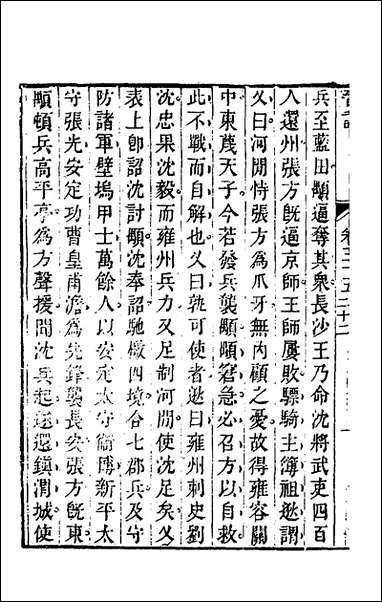 兵至藍田顒逼奪其衆長沙王乃命沈將武吏四百
人還州張方旣逼京師王師屢敗驃騎主簿祖逖謂
乂曰河閒恃張方爲爪牙無内顧之憂故得雍容關
中東蔑天子今若發兵襲顒顒窘急必召方以自救
此不戰而自解也乂曰孰可使者逖曰雍州刺史劉
沈忠果沈毅而雍州兵力又足制河閒使沈足矣乂
表上卽詔沈討顒沈奉詔馳檄四境合七郡兵及守
防諸軍壁塢甲士萬餘人以安定太守衞博新平太
守張先安定功曹皇甫澹爲先鋒襲長安張方旣東
顒頓兵高平亭爲方聲援聞沈兵起逐還鎭渭城使